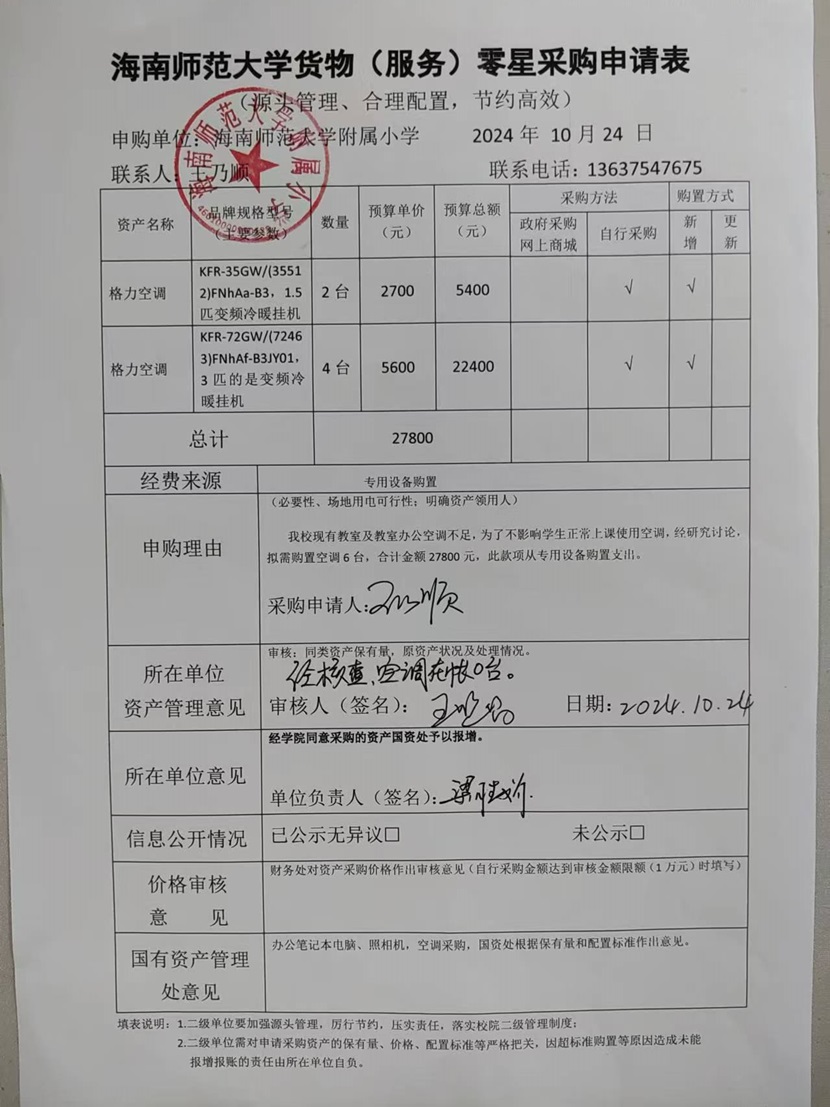 海南师范大学货物（服务）零星采购申请表
（源头管理、合理配置，节约高效）
申购单位：海南师范大学附属小学 2024 年 10 月 24 日
联系人：王乃顺 联系电话：13637547675
资产名称 品牌规格型号（主要参数） 数量 预算单价（元） 预算总额（元） 采购方法 购置方式
政府采购网上商城 自行采购 新增 更新
格力空调 KFR-35GW/(35512)FNhAa-B3，1.5匹变频冷暖挂机 2 台 2700 5400 √ √
格力空调 KFR-72GW/(72463)FNhAf-B3JY01，3 匹的是变频冷暖挂机 4 台 5600 22400 √ √
总计 27800
经费来源 专用设备购置
申购理由 （必要性、场地用电可行性；明确资产领用人）
我校现有教室及教室办公空调不足，为了不影响学生正常上课使用空调，经研究讨论，
拟需购置空调 6 台，合计金额 27800 元，此款项从专用设备购置支出。
采购申请人：王乃顺
所在单位资产管理意见 审核：同类资产保有量，原资产状况及处理情况。
经核查，空调在帐0台。
审核人（签名）： 日期：2024.10.24
所在单位意见 经学院同意采购的资产国资处予以报增。
单位负责人（签名）：
信息公开情况 已公示无异议□ 未公示□
价格审核意 见 财务处对资产采购价格作出审核意见（自行采购金额达到审核金额限额（1 万元）时填写）
国有资产管理处意见 办公笔记本电脑、照相机，空调采购，国资处根据保有量和配置标准作出意见。
填表说明：1.二级单位要加强源头管理，厉行节约，压实责任，落实校院二级管理制度；
2.二级单位需对申请采购资产的保有量、价格、配置标准等严格把关，因超标准购置等原因造成未能
报增报账的责任由所在单位自负。
海南师范大学附属小学